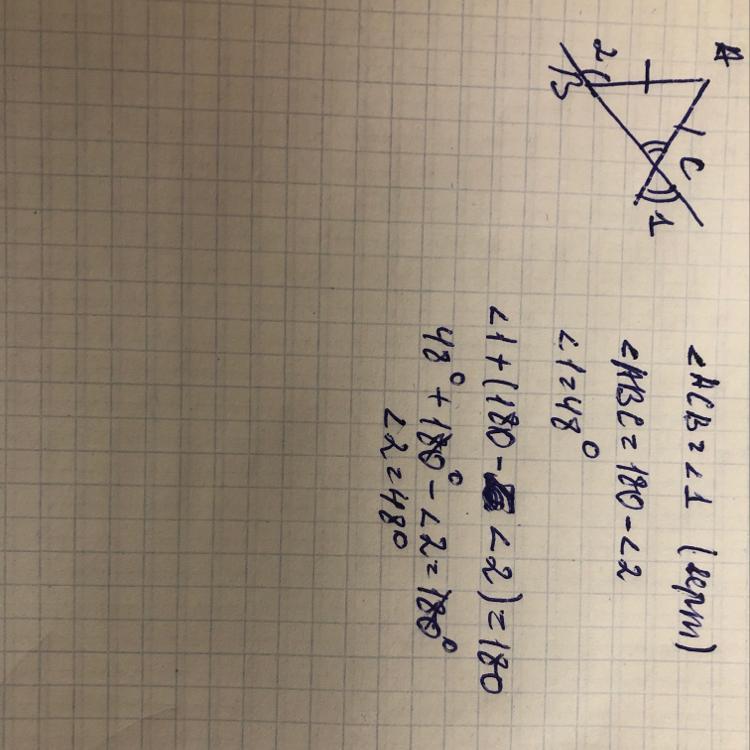 A
2
B
C
1
∠ACB = ∠1 (верт)
∠ABC = 180 - ∠2
∠1 = 48°
∠1 + (180 - ∠2) = 180
48° + 180° - ∠2 = 180°
∠2 = 48°